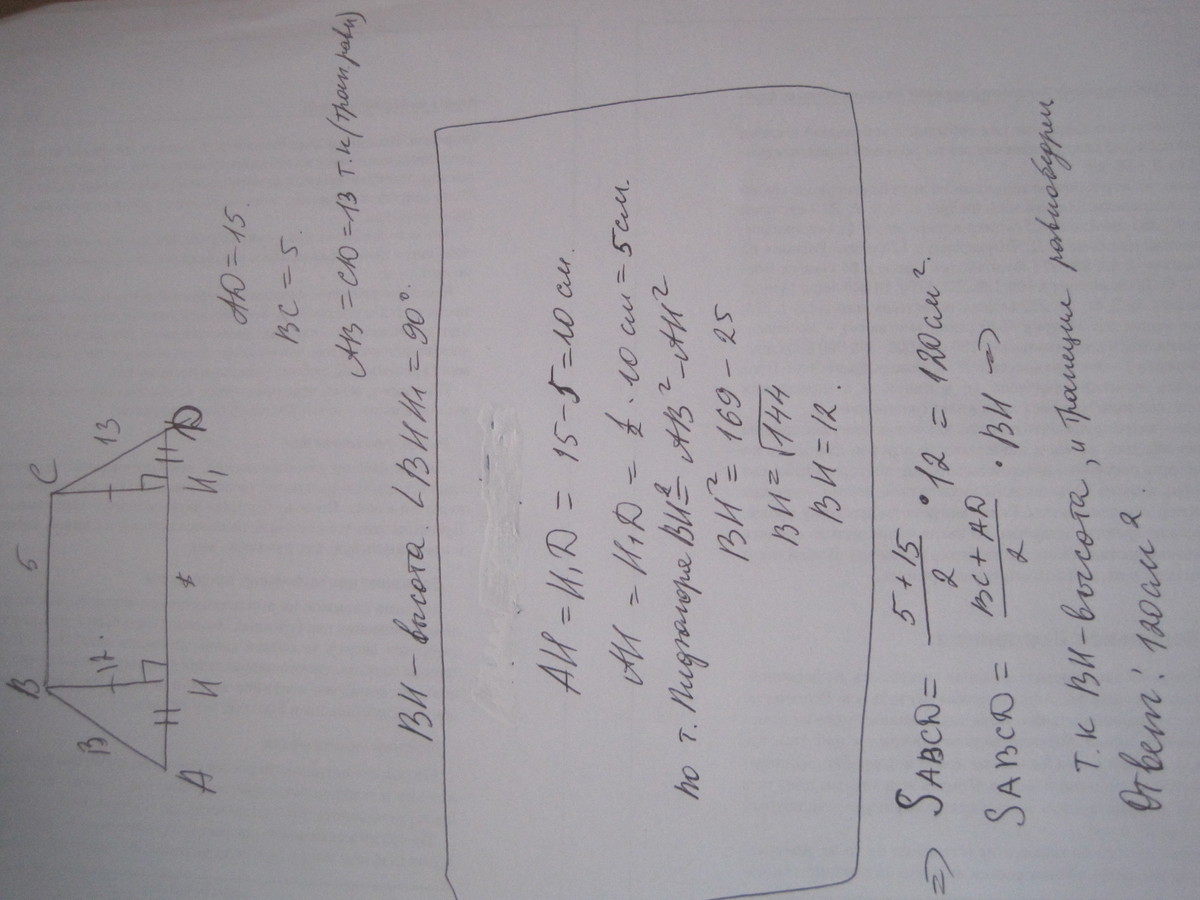 B 5 C
13 12. 13
A H H₁ D
AD = 15.
BC = 5.
AB = CD = 13 т.к (трап равн)
BH – высота. ∠BHH₁ = 90°.
AH = H₁D = 15 – 5 = 10 см.
AH = H₁D = ½ · 10 см = 5 см.
по т. Пифагора BH² = AB² – AH²
BH² = 169 – 25
BH = √144
BH = 12.
=> SABCD = (5 + 15)/2 · 12 = 120 см².
SABCD = (BC + AD)/2 · BH =>
т.к BH – высота, и трапеция равнобедрен
Ответ: 120 см 2.